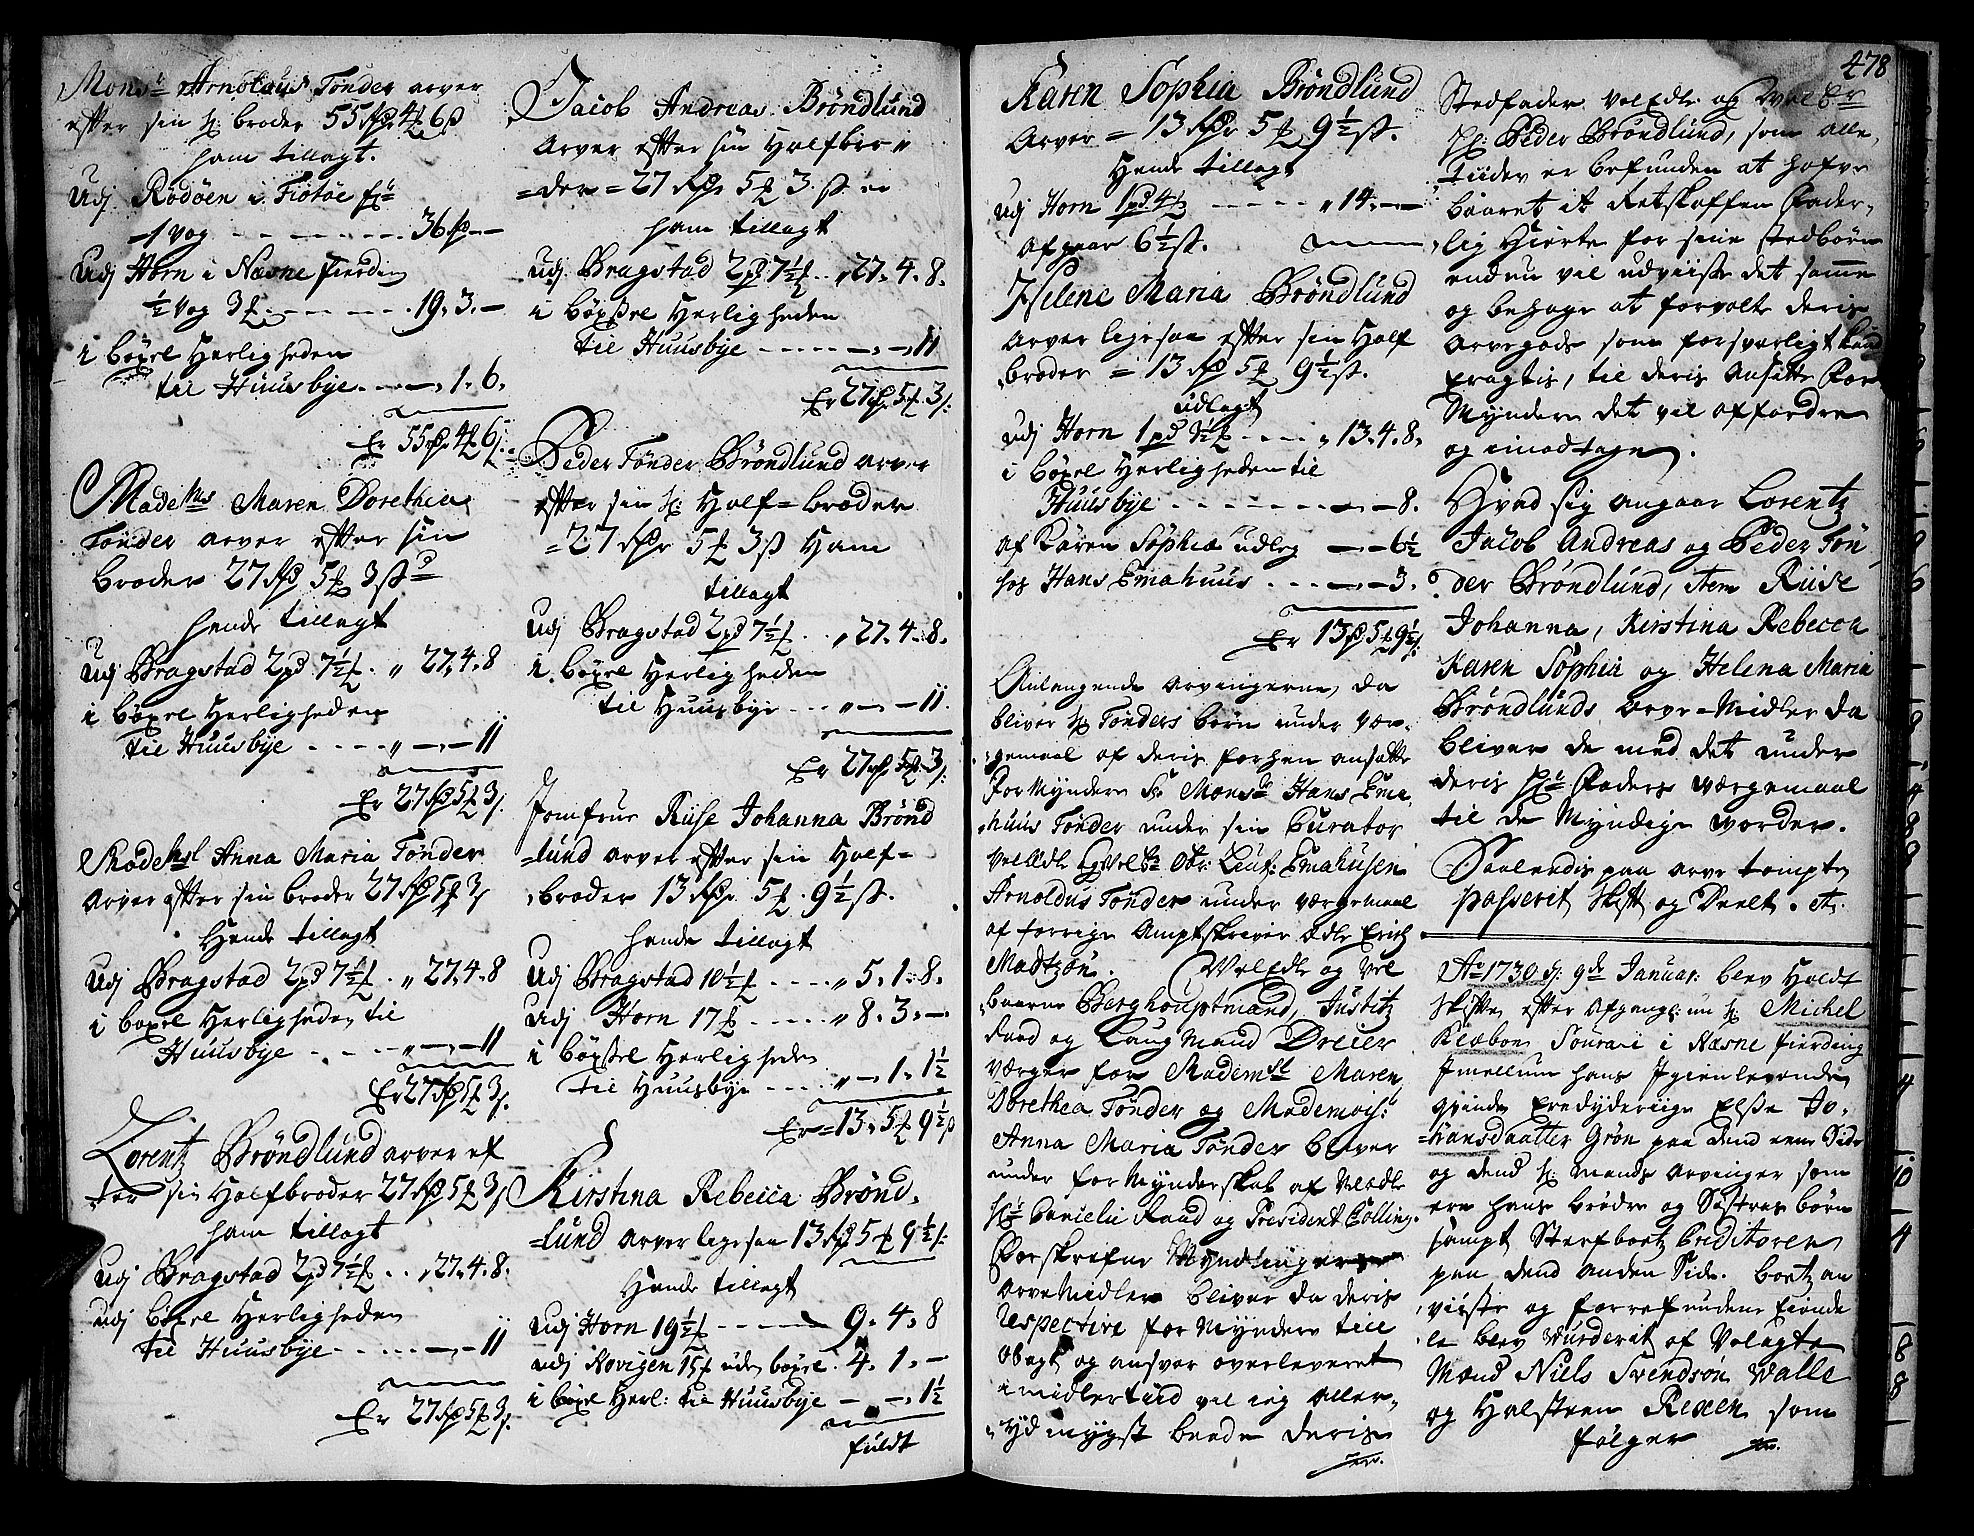 Mons.r Arnoldus Tönder arver
efter sin Sl: broder 55 rdr 4 f 6 ß
ham tillagt.
Udj Rödöen i
1 vog - - - - - 36 rd - -
Udj Horn i Næsne fierding
½ vog 3 f. - - - - . 19. 3. -
i böxel Herligheden
til Huusbye. - - -. 1. 6.
Er 55 rd 4 f 6 ß.
Madems Maren Dorethea
Tönder arver efter sin
broder 27 rd 5 f 3 ß
hende tillagt
Udj Bragstad 2 pd 7½ f. „ 27. 4. 8
i böxel Herligheden
til Huusbye - - - - „ - . - 11
Er 27 rd 5 f 3 ß.
Mademsl Anna Maria Tönder
arver efter sin broder 27 rd 5 f 3 ß
Hende tillagt
Udj Bragstad 2 pd 7½ f. „ 27. 4. 8
i böxel Herligheden til
Huusbye - - - - „ - . - 11
Er 27 rd 5 f 3 ß.
Lorentz Bröndlund arver ef
ter sin Halfbroder 27 rd 5 f 3 ß
ham tillagt
Udj Bragstad 2 pd 7½ f . . „ 27. 4. 8.
udj böxel Herligheden
til Huusbye - - - - . - . - 11
Er 27 rd 5 f 3 ß.
Jacob Andreas Bröndlund
Arver efter sin Halfbro
=der = 27 rdr 5 f 3. ß er
ham tillagt
Udj. Bragstad 2 pd 7½ f . . „ 27. 4. 8.
i böxsel Herligheden
til Huusbye - - - - - . - 11
Er 27 rd 5 f 3 ß:
Peder Tönder Bröndlund arver
efter sin Sl: Half=broder
=27 rdr 5 f 3 ß Ham
tillagt
Udj Bragstad 2 pd 7½ f . . „ 27. 4. 8.
i böxel Herligheden
til Huusbye - - - „ - . - 11.
Er 27 rd 5 f 3 ß:
Jomfrue Riise Johanna Brönd
=lund arver efter sin Half=
broder 13 rdr 5 f. 9½ ß.
hende tillagt
Udj Bragstad 10½ f - - - - „ 5. 1. 8.
Udj Horn 17 f - - . - - „ 8. 3. -
i böxsel Herligheden
til Huusbye - - - - „ - . 1. 1½
Er = 13. 5 f 9½ ß
Kirstina Rebecca Brönd.
=lund arver ligesaa 13 rd 5 f 9½ ß:
Hende tillagt
Udj Horn 19½ f - - - - - 9. 4. 8
udj Kovigen 15 f uden böxel . 4. 1. -
i böxel Herl: til Huusbye - - . 1½
fuldt
Karen Sophia Bröndlund
Arver = 13 rdr 5 f 9½ ß.
Hende tillagt
udj Horn 1 pd 4 f - - - - - „ 14. - -
afgaar 6½ ß.
Helene Maria Bröndlund
Arver ligesaa efter sin Half
broder = 13 rd 5 f 9½ ß.
udlagt
udj Horn 1 pd 3½ f - - . - „ 13. 4. 8.
i böxel Herligheden til
Huusbye - - - - - - - - - 8.
af Karen Sophia udleg - - 6½
hos Hans Emahuus . - - - . - 3.
Er 13 rd 5 f 9½ ß.
Anlangende arvingerne, da
bliver Sl: Tönders börn under vær-
gemaal af deris forhen ansatte
Formyndere Mons.r Hans Ema
huus Tönder under sin Curator
VelEdle og Velb: Obr: Lieut: Emahusen
Arnoldus Tönder under værgemaal
af forrige Amptskriver Edle Erich
Madtzön. VelEdle og Vel
baarne Berghouptmand, Justitz
Raad og Laugmand Dreier
værger for Mademsl Maren
Dorethea Tönder og Mademois:l
Anna Maria Tönder bliver
under Formynderskab af VelEdle
Hr Cancelie Raad og President Colling.
Forskrefne Myndlinger
arvemidler bliver da deris
respective Formynder till
obagt og ansvar overleveret
imidlertiid vil ieg aller-
ydmygst beede deris
478
Stedfader VelEdle og Velær
Hr: Peder Bröndlund, som alle
tiider er befunden at hafve
baaret it Retskaffen Fader-
lig Hierte for sine stedbörn
endnu vil udviise det samme
og behage at forvalte deris
Arvegods som forsvarligt kand
Eragtis, til deris ansatte For
Myndere det vil affordre
og imodtage.
Hvad sig angaar Lorentz
Jacob Andreas og Peder Tön
der Bröndlund, item Riise
Johanna, Kirstina Rebecca
Karen Sophia og Helena Maria
Bröndlunds arve-Midler da
bliver de med det under
deris Hr Faders værgemaal
til de Myndige vorder.
Saaledis paa arve tompten
passerit Skift og Deelt. etc.
Ao 1730 d: 9de Januar: blev Holdt
Skifte efter afgangl: nu Sl: Michel
Klæboe Soura i Næsne fierding
Jmellum hans Jgienlevende
qvinde Eredyderiige Elsse Jo-
hansdaatter Grön paa dend eene Side
og dend Sl: mands arvinger som
ere hans brödre og Söstres börn
sampt Sterfboetz Creditoren
paa dend anden Side. boetz an
viiste og forrefundene Eiende
le blev wurderit af Velagte
Mænd Niels Svendsön Walle
og Halsteen Rexen som
fölger